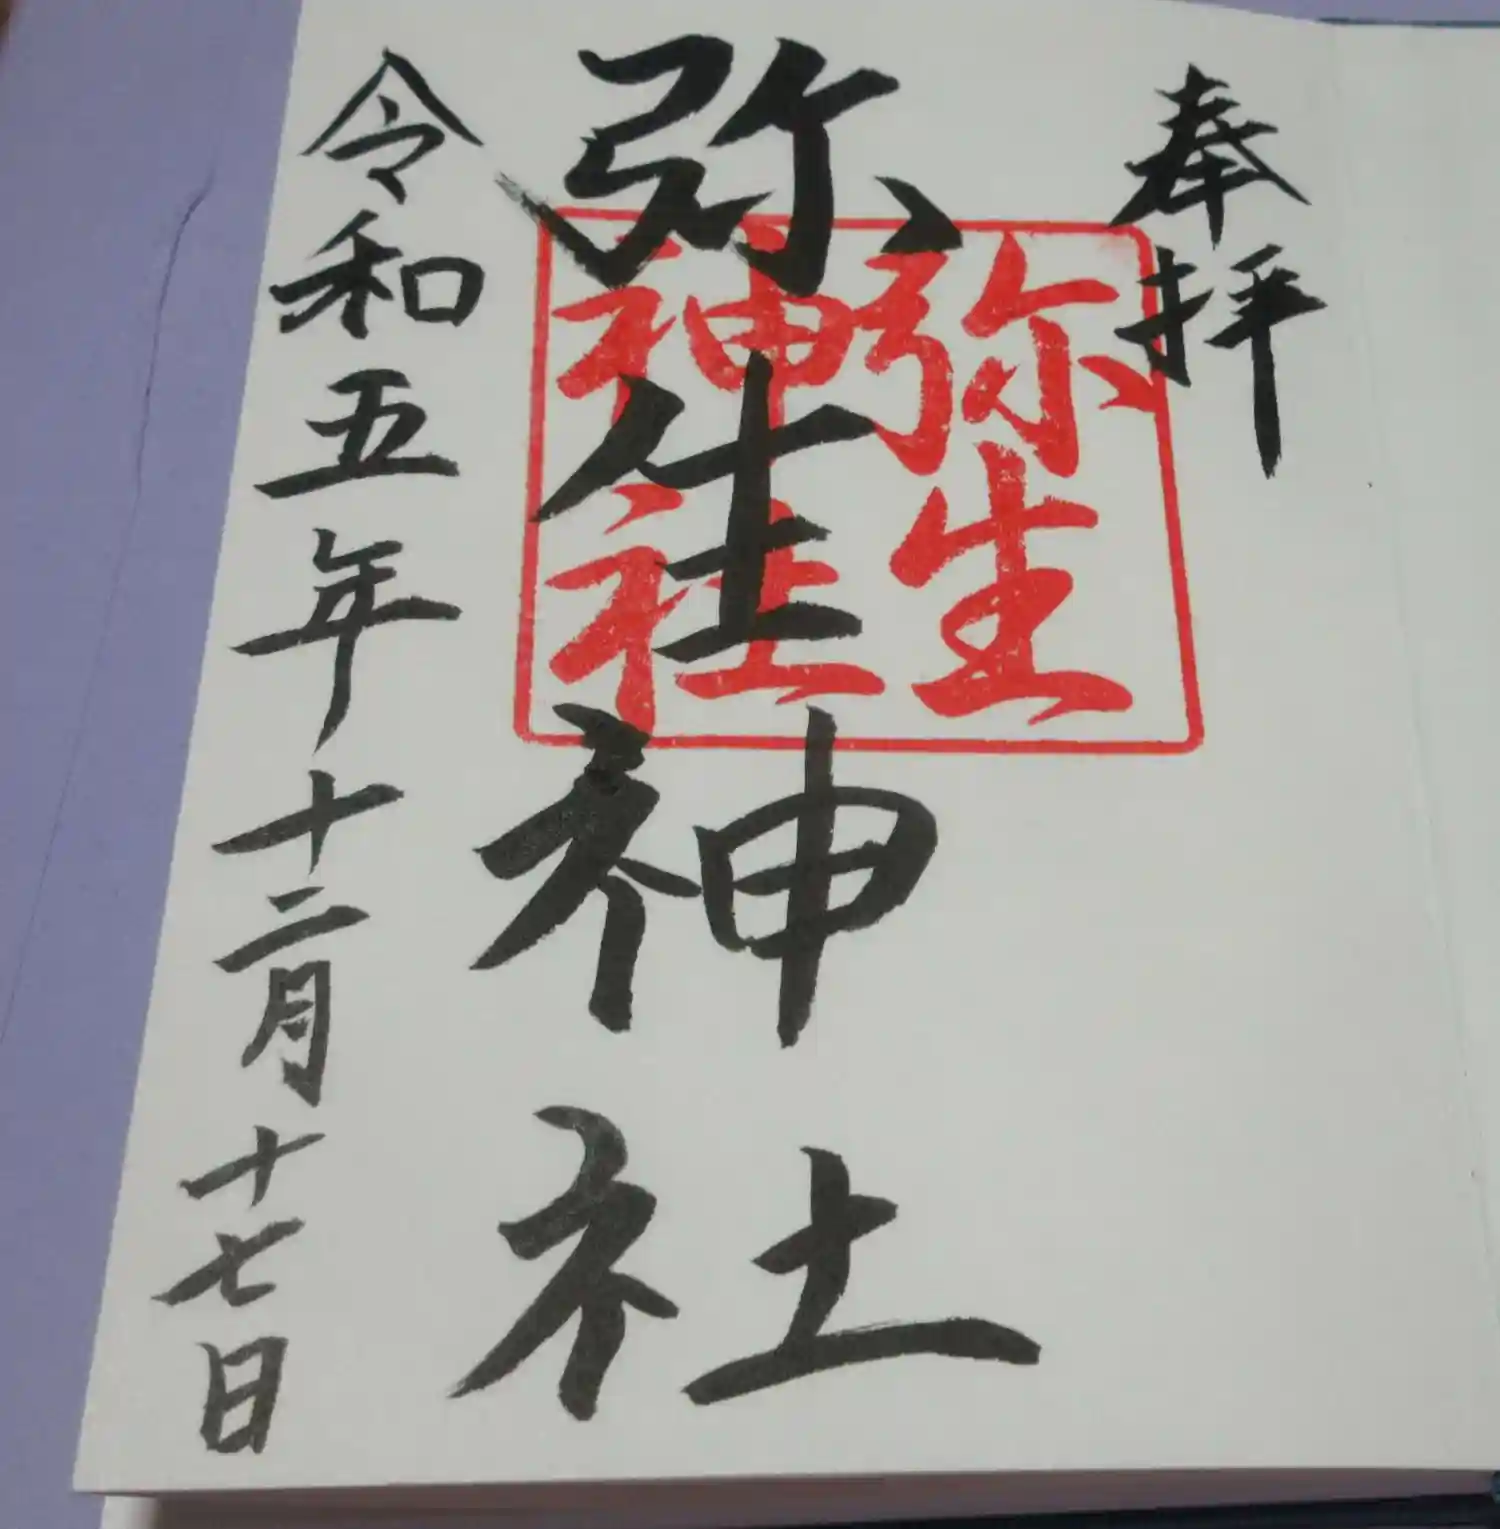 奉拝
弥生
神社
弥生神社
令和五年十二月十七日